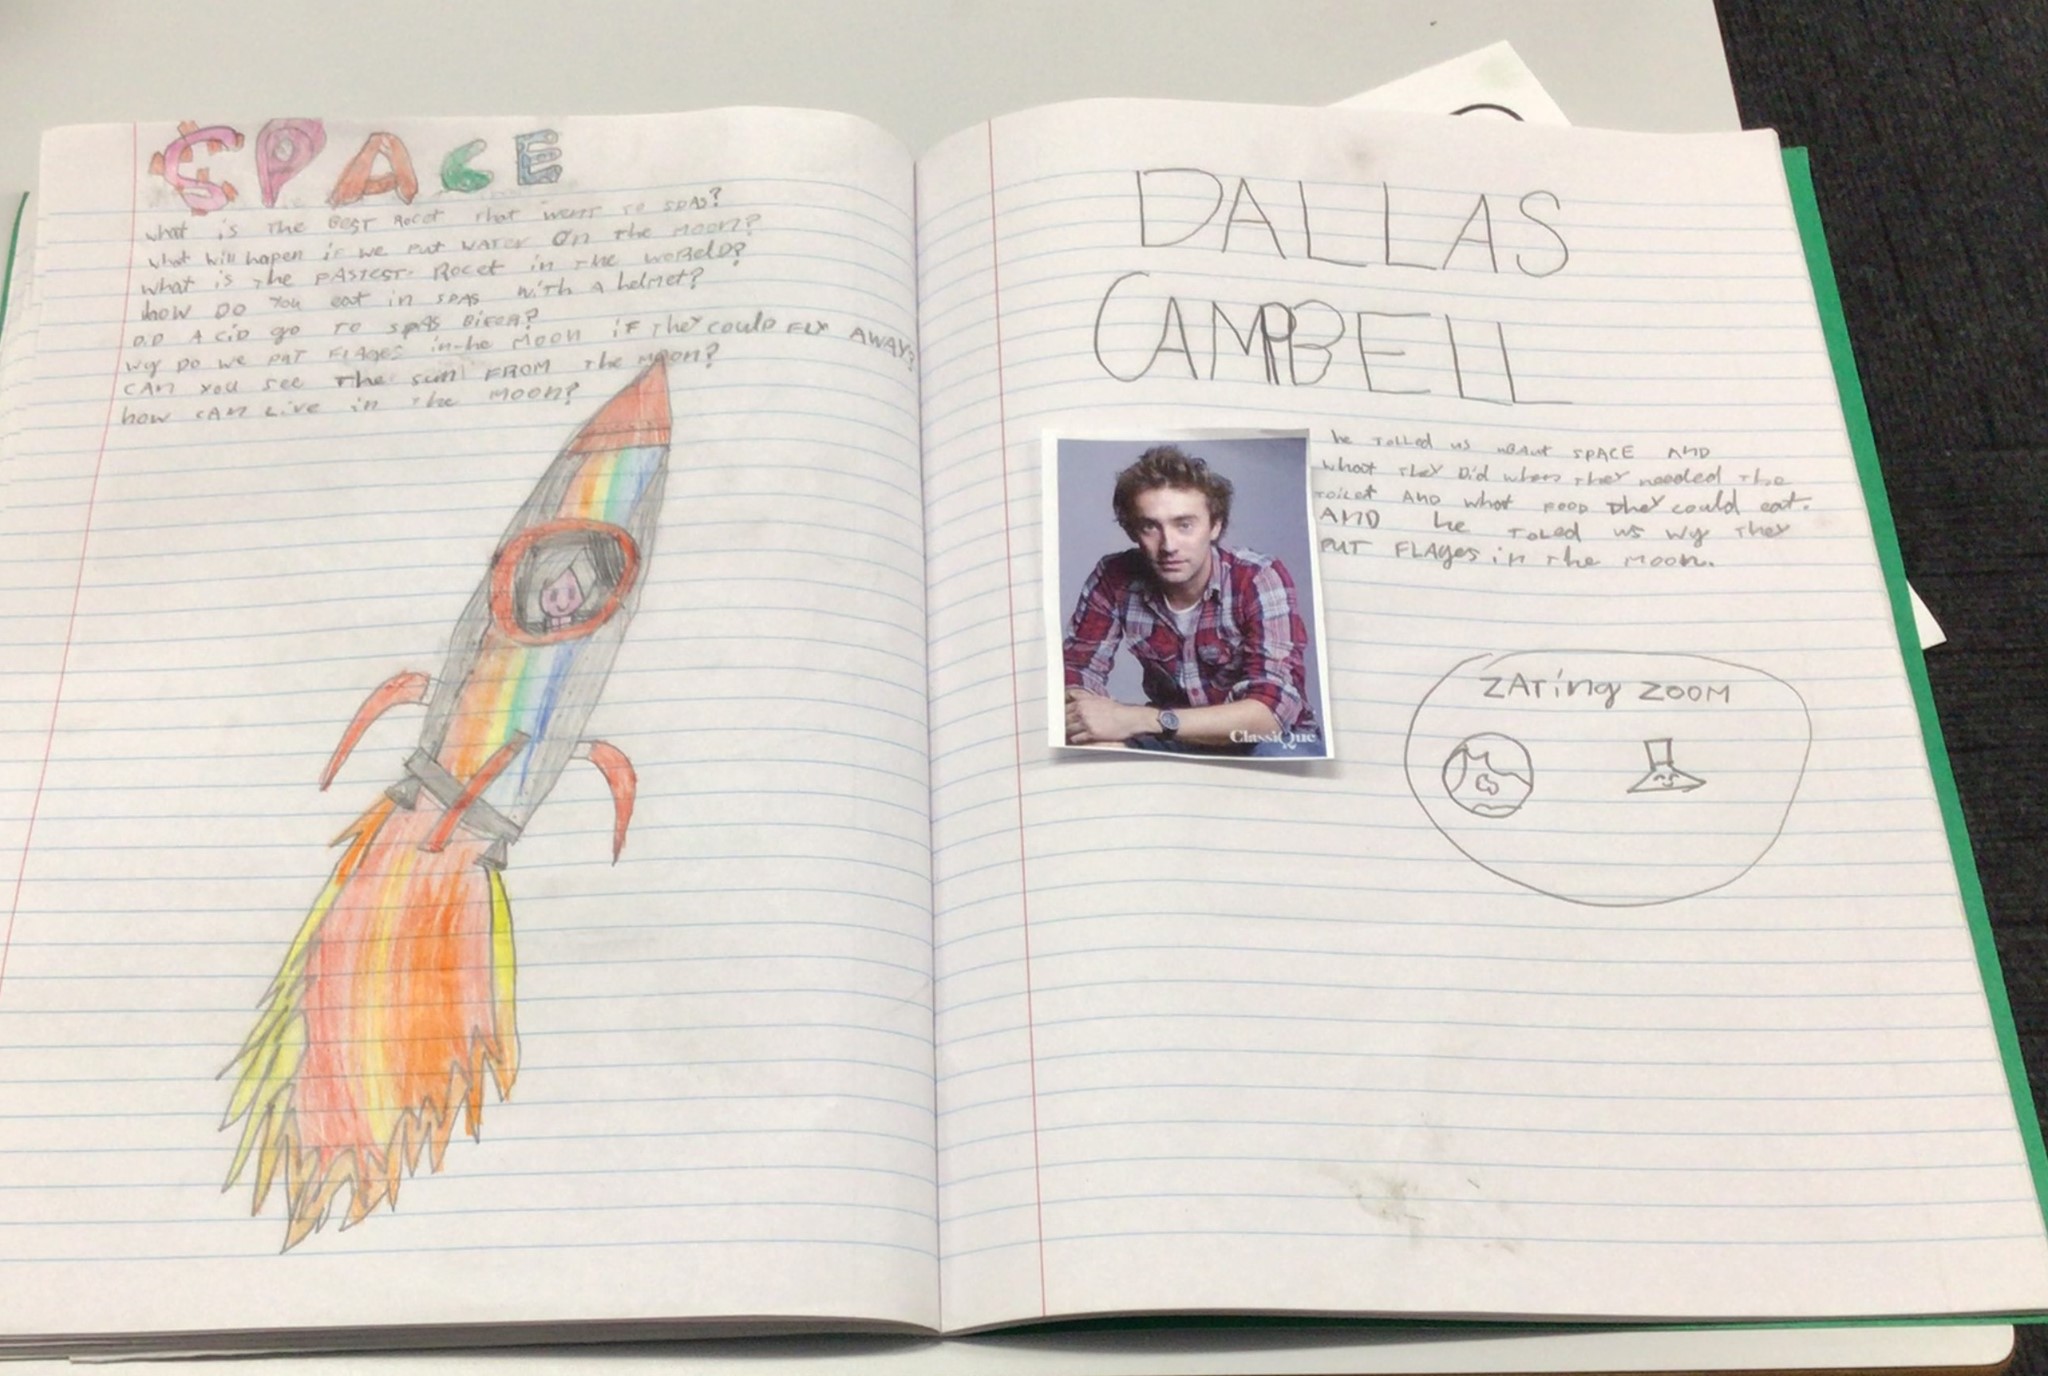 SPACE
what is the BEST Rocet that went to SPAS?
what will hapen if we put water on the moon?
what is the FASTEST Rocet in the woreld?
how Do you eat in SPAS with A helmet?
DiD A CiD go to SPAS Bifor?
wy Do we put FLAges in the Moon if they could FLY AWAY?
CAN you see The sun FROM the moon?
how CAN Live in the moon?
DALLAS
CAMPBELL
he tolled us about SPACE AND
what they Did when they needed the
toilet AND what FOOD they could eat.
AND he toled us wy they
PUT FLAges in the moon.
ClassiQue
ZATing ZOOM